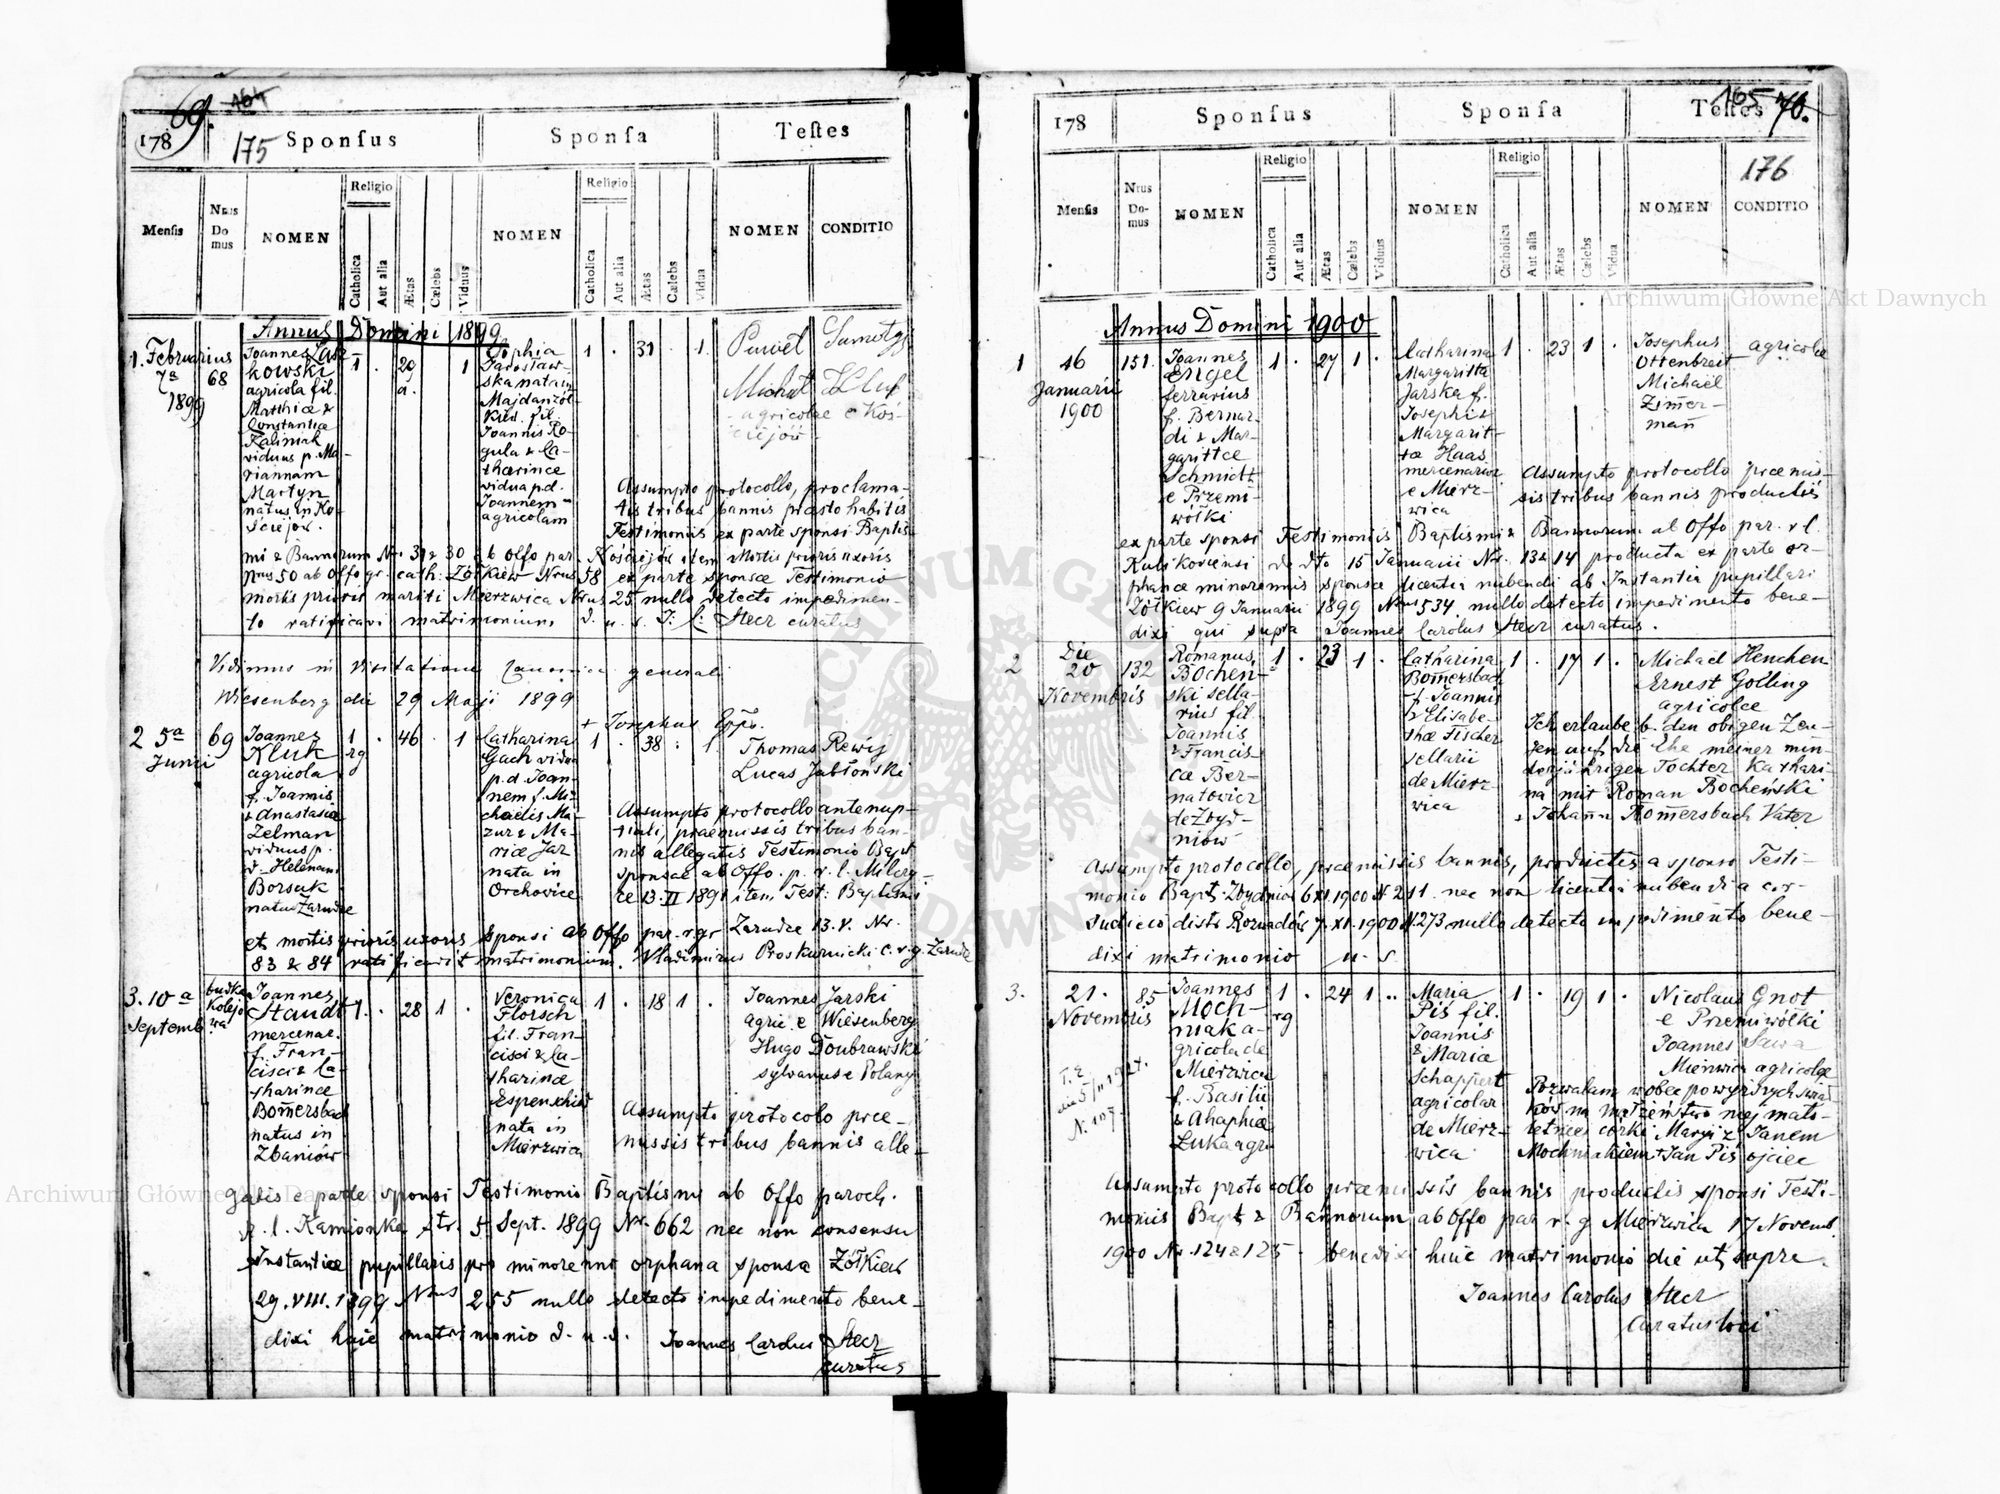 69.
164
178
175
Sponſus
Sponſa
Teſtes
Menſis
Nrus Domus
NOMEN
Religio
Catholica
Aut alia
Ætas
Cælebs
Viduus
NOMEN
Religio
Catholica
Aut alia
Ætas
Cælebs
Vidua
NOMEN
CONDITIO
Annus Domini 1899
1. Februarius
7a
1899
68
Joannes Lasz
kowski
agricola fil.
Matthiæ &
Constantia
Kaliniak
viduus p. Ma-
riannam
Martyn
natus in Ko-
ściejów.
1 . 29 1
a.
Sophia
Jarosław-
ska nata in
Majdan żół-
kiew. fil.
Joannis Ro-
gula & Ca-
tharinæ
vidua p.d.
Joannem
agricolam
1 . 31 . 1
Michał Kluk
agricolae e Koś-
ciejów.
Assumpto protocollo, proclama-
tis tribus bannis præsto habitis
Testimoniis ex parte sponsi Baptis-
mi & Bannorum Nr. 31 & 30 ab Offo par. Kościejów item Mortis prioris uxoris
Nrus 50 ab Offo gr. cath: Żółkiew Nrus 58 ex parte sponsæ Testimonio
mortis prioris mariti Mierzwica Nrus 25 nullo detecto impedimen-
to ratificavi matrimonium d. u. s. J: C: Stecr curatus
Vidimus in Visitatione Canonica generali
Wiesenberg die 29 Maji 1899
+ Josephus Eppo.
2 5a
Junii
69
Joannes
Kluk
agricola
f. Joannis
& Anastasia
Zelman
viduus p.
d. Helenam
Borsuk
natus Zarudce
1 . 46 . 1
rg
Catharina
Gach vidua
p.d. Joan-
nem f. Mi-
chaelis Ma-
zur & Ma-
riæ Jar
nata in
Orchowice
1 . 38 . 1.
Thomas Rewij
Lucas Jabłoński
Assumpto protocollo antenup-
tiali, praemissis tribus ban-
nis allegatis Testimonio Bapt
sponsæ ab Offo. p. r. l. Milczy-
ce 13.II 1891 item Test: Baptismi
et mortis prioris uxoris sponsi ab Offo par. r. gr Zarudce 13. V. Nr.
83 & 84 ratificavit matrimonium. Vladimirus Proskurnicki c. r. g. Zarudce
3. 10a
Septemb
budka
Kolejo
wa
Joannes
Staudt
mercenar.
f. Fran-
cisci & Ca-
tharinæ
Bom̄ersbach
natus in
Zbaniów
1 . 28 1 .
Veronica
Florsch
fil. Fran-
cisci & Ca-
tharinæ
Espenschied
nata in
Mierzwica
1 . 18 1 .
Joannes Jarski
agric. e Wiesenberg
Hugo Doubrawski
sylvanus e Polany
Assumpto protocolo præ-
missis tribus bannis alle-
gatis e parte sponsi Testimonio Baptismi ab Offo paroch.
r. l. Kamionka str. 5 Sept. 1899 Nr. 662 nec non consensu
Instantiæ pupillaris pro minorenni orphana sponsa Żółkiew
29.VIII.1899 Nrus 255 nullo detecto impedimento bene-
dixi huic matrimonio d. u. s. Joannes Carolus Stecr
curatus
165 70.
178
Sponſus
Sponſa
Teſtes
176
Menſis
Nrus Domus
NOMEN
Religio
Catholica
Aut alia
Ætas
Cælebs
Viduus
NOMEN
Religio
Catholica
Aut alia
Ætas
Cælebs
Vidua
NOMEN
CONDITIO
Annus Domini 1900
1
16
Januarii
1900
151.
Joannes
Engel
ferrarius
f. Bernar-
di & Mar-
garittæ
Schmidt
e Przemi-
wółki
1 . 27 1 .
Catharina
Margaritta
Jarska f.
Josephi &
Margarit-
tæ Haas
mercenarior
e Mierz-
wica
1 . 23 1 .
Josephus
Ottenbreit
Michael
Zim̄er-
man̄
agricolæ
Assumpto protocollo præmis-
sis tribus bannis productis
ex parte sponsi Testimoniis Baptismi & Bannorum ab Offo par. r l.
Kulikoviensi de dto 15 Januarii Nr. 13 & 14 producta ex parte or-
phanæ minorennis sponsæ licentia nubendi ab Instantia pupillari
Żółkiew 9 Januarii 1899 Nrus 534 nullo detecto impedimento bene-
dixi qui supra Joannes Carolus Stecr curatus.
2
Die
20
Novembris
132
Romanus
Bochen-
ski sella-
rius fil
Joannis
& Francis-
cæ Ber-
natowicz
de Zbyd-
niów
1 . 23 1 .
Catharina
Bom̄ersbach
f. Joannis
& Elisabe-
thæ Fischer
sellarii
de Mierz-
wica
1 . 17 1 .
Michael Henchen
Ernest Golling
agricolæ
Ich erlaube b. den obigen Zeu-
gen auf die Ehe meiner min-
derjährigen Tochter Kathari-
na mit Roman Bocheński
Johan̄ Bom̄ersbach Vater
Assumpto protocollo, præmissis bannis, productis a sponso Testi-
monio Bapt. Zbydniow 6 XI.1900 N 211. nec non licentia nubendi a cor-
Judicio distr Rozwadów 7.XI.1900 N.273 nullo detecto impedimento bene-
dixi matrimonio u. s.
3.
21.
Novembris
85
Joannes
Moch-
niak a-
gricola de
Mierzwica
f. Basilii
& Ahaphiæ
Luka agr.
1 . 24 1 ..
rg
Maria
Piś fil.
Joannis
& Mariæ
Schappert
agricolar
de Mierz-
wica
1 . 19 1 .
Nicolaus Gnot
e Przemiwółki
Joannes Sawa
Mierzwica agricolæ
Pozwalam wobec powyższych świad-
ków na małżeństwo mej mało-
letniej córki Maryi z Janem
Mochniakiem + Jan Piś ojciec
Assumpto protocollo præmissis bannis productis sponsi Testi-
moniis Bapt. & Bannorum ab Offo par r. g Mierzwica 17 Novemb.
1900 Nr. 124 & 125 . benedixi huic matrimonio die ut supra.
Joannes Carolus Stecr
Curatus loci
Archiwum Główne Akt Dawnych
Archiwum Główne Akt Dawnych
ARCHIWUM GŁÓWNE AKT DAWNYCH